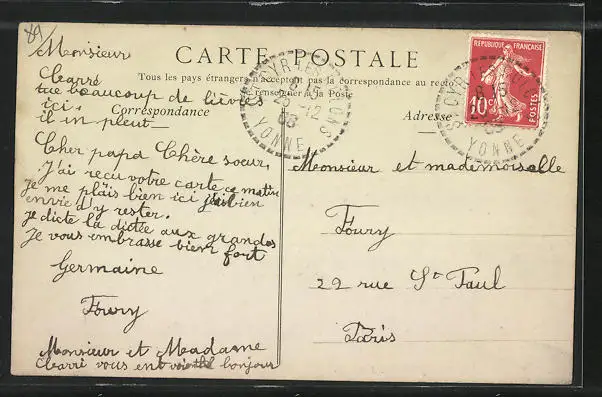 89
Monsieur
Carré
tue beaucoup de lièvres
ici.
il en pleut
CARTE POSTALE
Tous les pays étrangers n'acceptent pas la correspondance au recto
(se renseigner à la Poste
Correspondance
Adresse
Cher papa Chère soeur,
J'ai reçu votre carte ce matin
Je me plaîs bien ici j'ai bien
envie d'y rester.
je dicte la dictée aux grandes
Je vous embrasse bien fort
Germaine
Foury
Monsieur et Madame
Carré vous bonjour
Monsieur et mademoiselle
Foury
22 rue St Paul
Paris
REPUBLIQUE FRANÇAISE
10c
POSTES
ST CYR LES COLONS
12
YONNE
ST CYR LES COLONS
YONNE